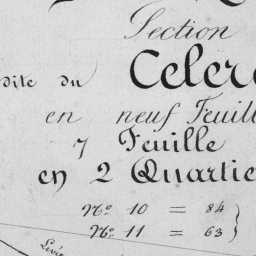 Section
dite du Celer
en neuf Feuill
7 Feuille
en 2 Quartie
N° 10 = 84
N° 11 = 63